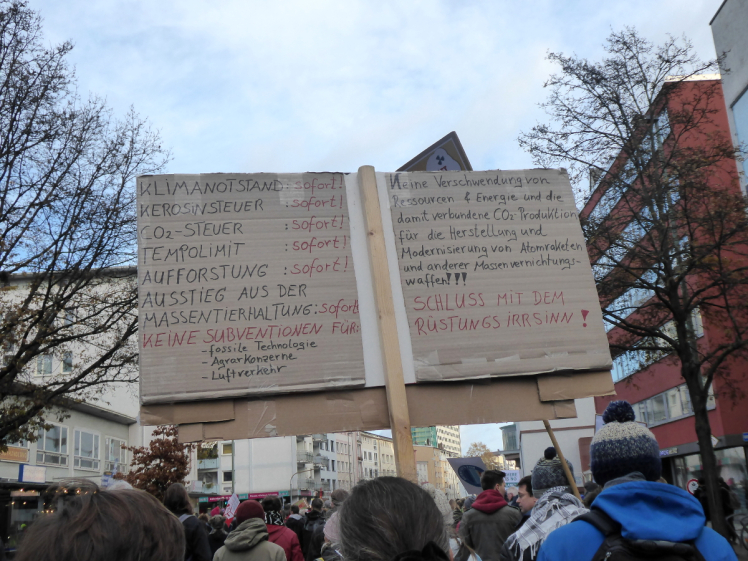 KLIMANOTSTAND: sofort!
KEROSINSTEUER : sofort!
CO2-STEUER : sofort!
TEMPOLIMIT : sofort!
AUFFORSTUNG : sofort!
AUSSTIEG AUS DER
MASSENTIERHALTUNG: sofort
KEINE SUBVENTIONEN FÜR:
- fossile Technologie
- Agrarkonzerne
- Luftverkehr
Keine Verschwendung von
Ressourcen & Energie und die
damit verbundene CO2-Produktion
für die Herstellung und
Modernisierung von Atomraketen
und anderer Massenvernichtungs-
waffen!!!
SCHLUSS MIT DEM
RÜSTUNGSIRRSINN!